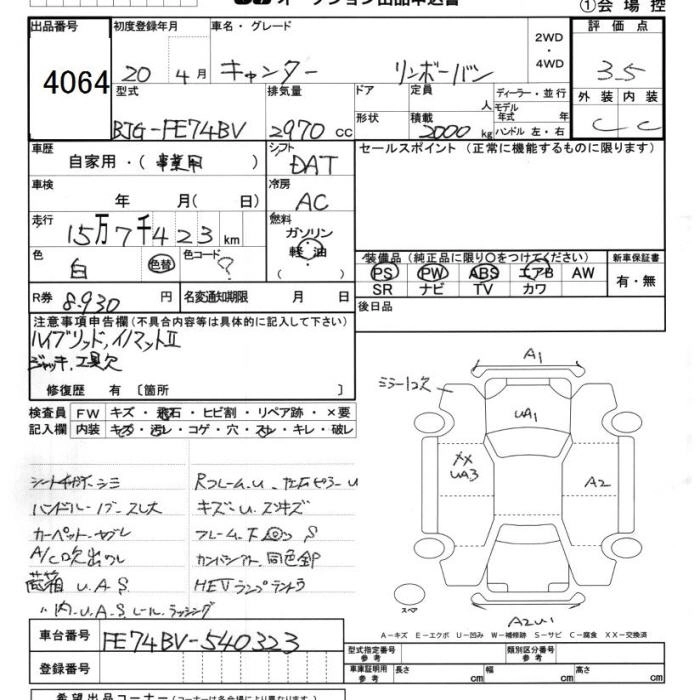 ①会場控
出品番号
4064
初度登録年月
20 4月
車名・グレード
キャンター リンボーバン
2WD・4WD
評価点
3.5
外装 内装
C C
型式
BJG-FE74BV
排気量
2970 cc
ドア
形状
定員 人
積載 2000 kg
ディーラー・並行
モデル年式 年
ハンドル 左・右
車歴
自家用・(事業用)
シフト
DAT
セールスポイント(正常に機能するものに限ります)
車検
年 月( 日)
冷房
AC
走行
15万7千423km
燃料
ガソリン
軽油
( )
色
白
色替
色コード
?
装備品(純正品に限り○をつけてください)
PS PW ABS エアB AW
SR ナビ TV カワ
新車保証書
有・無
R券 8.930 円
名変通知期限 月 日
後日品
注意事項申告欄(不具合内容等は具体的に記入して下さい)
ハイブリッド,イノマットⅡ
ジャッキ.工具欠
修復歴 有〔箇所 〕
検査員記入欄
FW キズ・飛石・ヒビ割・リペア跡・×要
内装 キズ・汚レ・コゲ・穴・スレ・キレ・破レ
ハンドル・ノブ・スレ大
カーペット.ヤブレ
A/C吹出ワレ
荷箱 U.A.S
〃内.U.A.S レール.ラッシング
Rフレーム.U
キズ・U
フレーム下 S
同色
HEVランプ
A1
ミラー1コ欠
UA1
XX
UA3
A2
スペア
A2U1
A-キズ E-エクボ U-凹み W-補修跡 S-サビ C-腐食 XX-交換済
車台番号 FE74BV-540323
登録番号
型式指定番号参考
類別区分番号参考
車庫証明用参考 長さ cm 幅 cm 高さ cm
希望出品コーナー(コーナーは各会場により異なります)